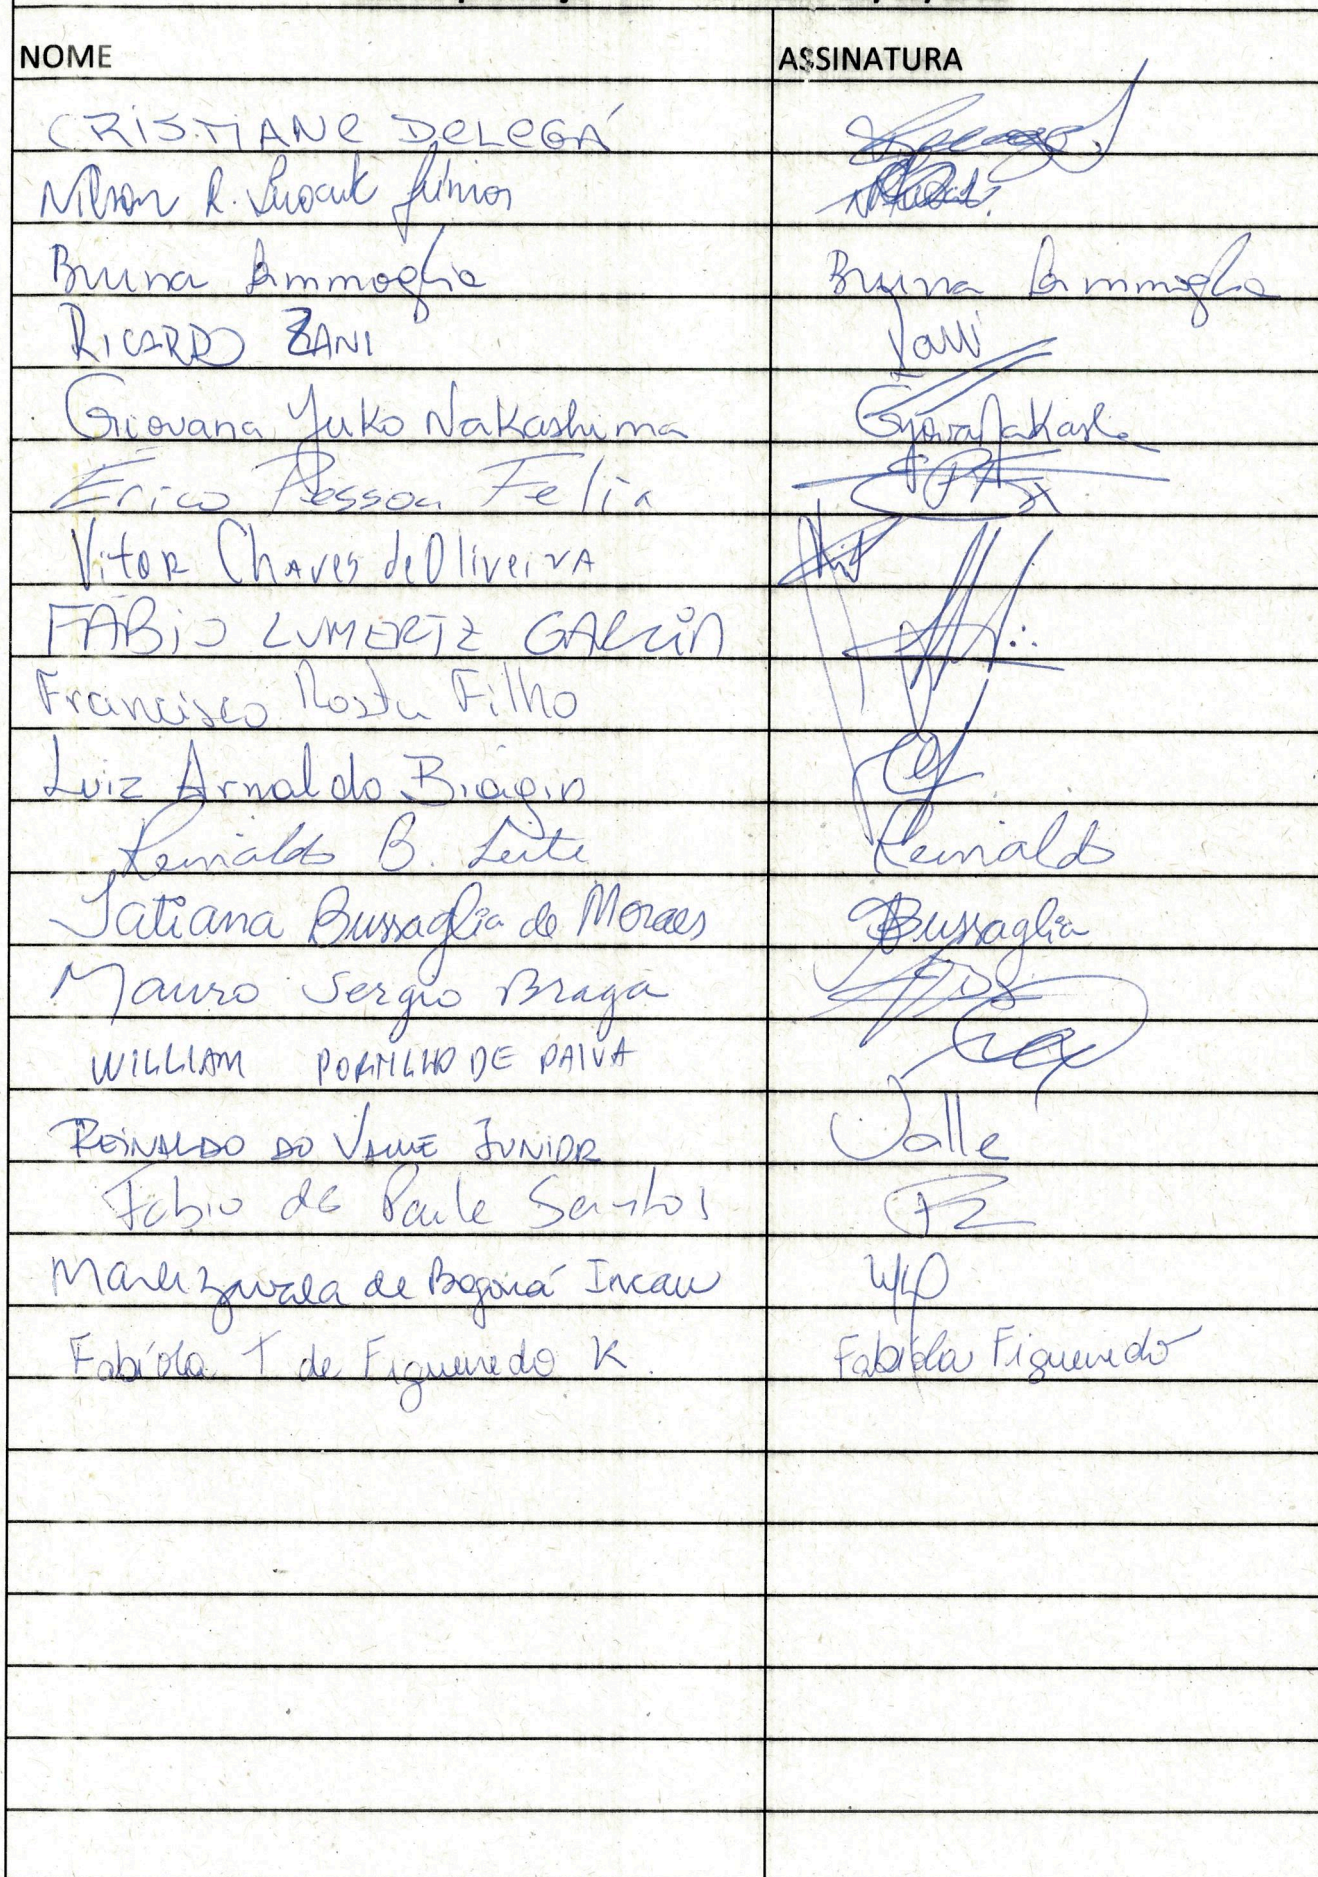 NOME ASSINATURA
CRISTIANE DELEGÁ
Nilson R. Júnior
Bruna Bruna
RICARDO ZANI Zani
Giovana Yuko Nakashima
Érico Pessoa Felix
Vitor Chaves de Oliveira
FÁBIO LUMERTZ GARCIA
Francisco Rosta Filho
Luiz Arnaldo Biagio
Reinaldo B. Leite Reinaldo
Tatiana Bussaglia de Moraes Bussaglia
Mauro Sergio Braga
WILLIAM PORTILHO DE PAIVA
REINALDO DO VALLE JUNIOR Valle
Fabio de Paula Santos
de Incau
Fabíola T de Figueiredo K. Fabíola Figueiredo